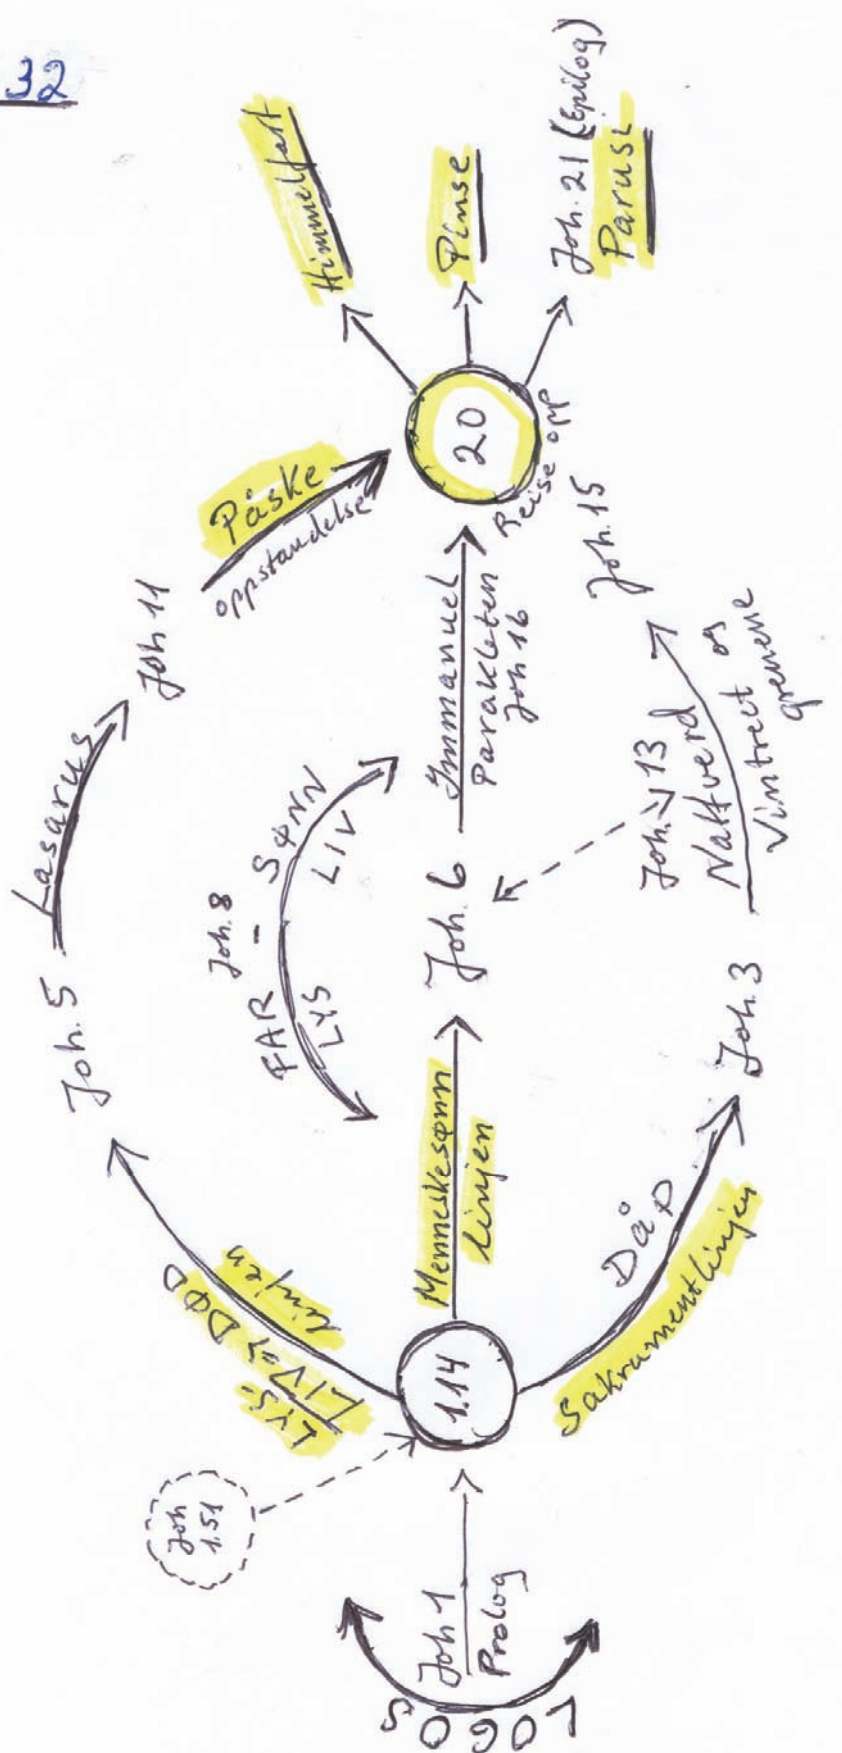 32
LOGOS
Joh 1
Prolog
Joh
1.51
1.14
LYS-
LIV og DØD
linjen
Joh. 5
Lasarus
Joh 11
Påske
oppstandelse
Menneskesønn
linjen
Joh. 8
FAR - SØNN
LYS LIV
Joh. 6
Immanuel
Parakleten
Joh 16
Sakramentlinjen
DåP
Joh. 3
Joh. 13
Nattverd og
Vintreet
grenene
Joh. 15
20
Reise opp
Himmelfart
Pinse
Joh. 21 (Epilog)
Parusi